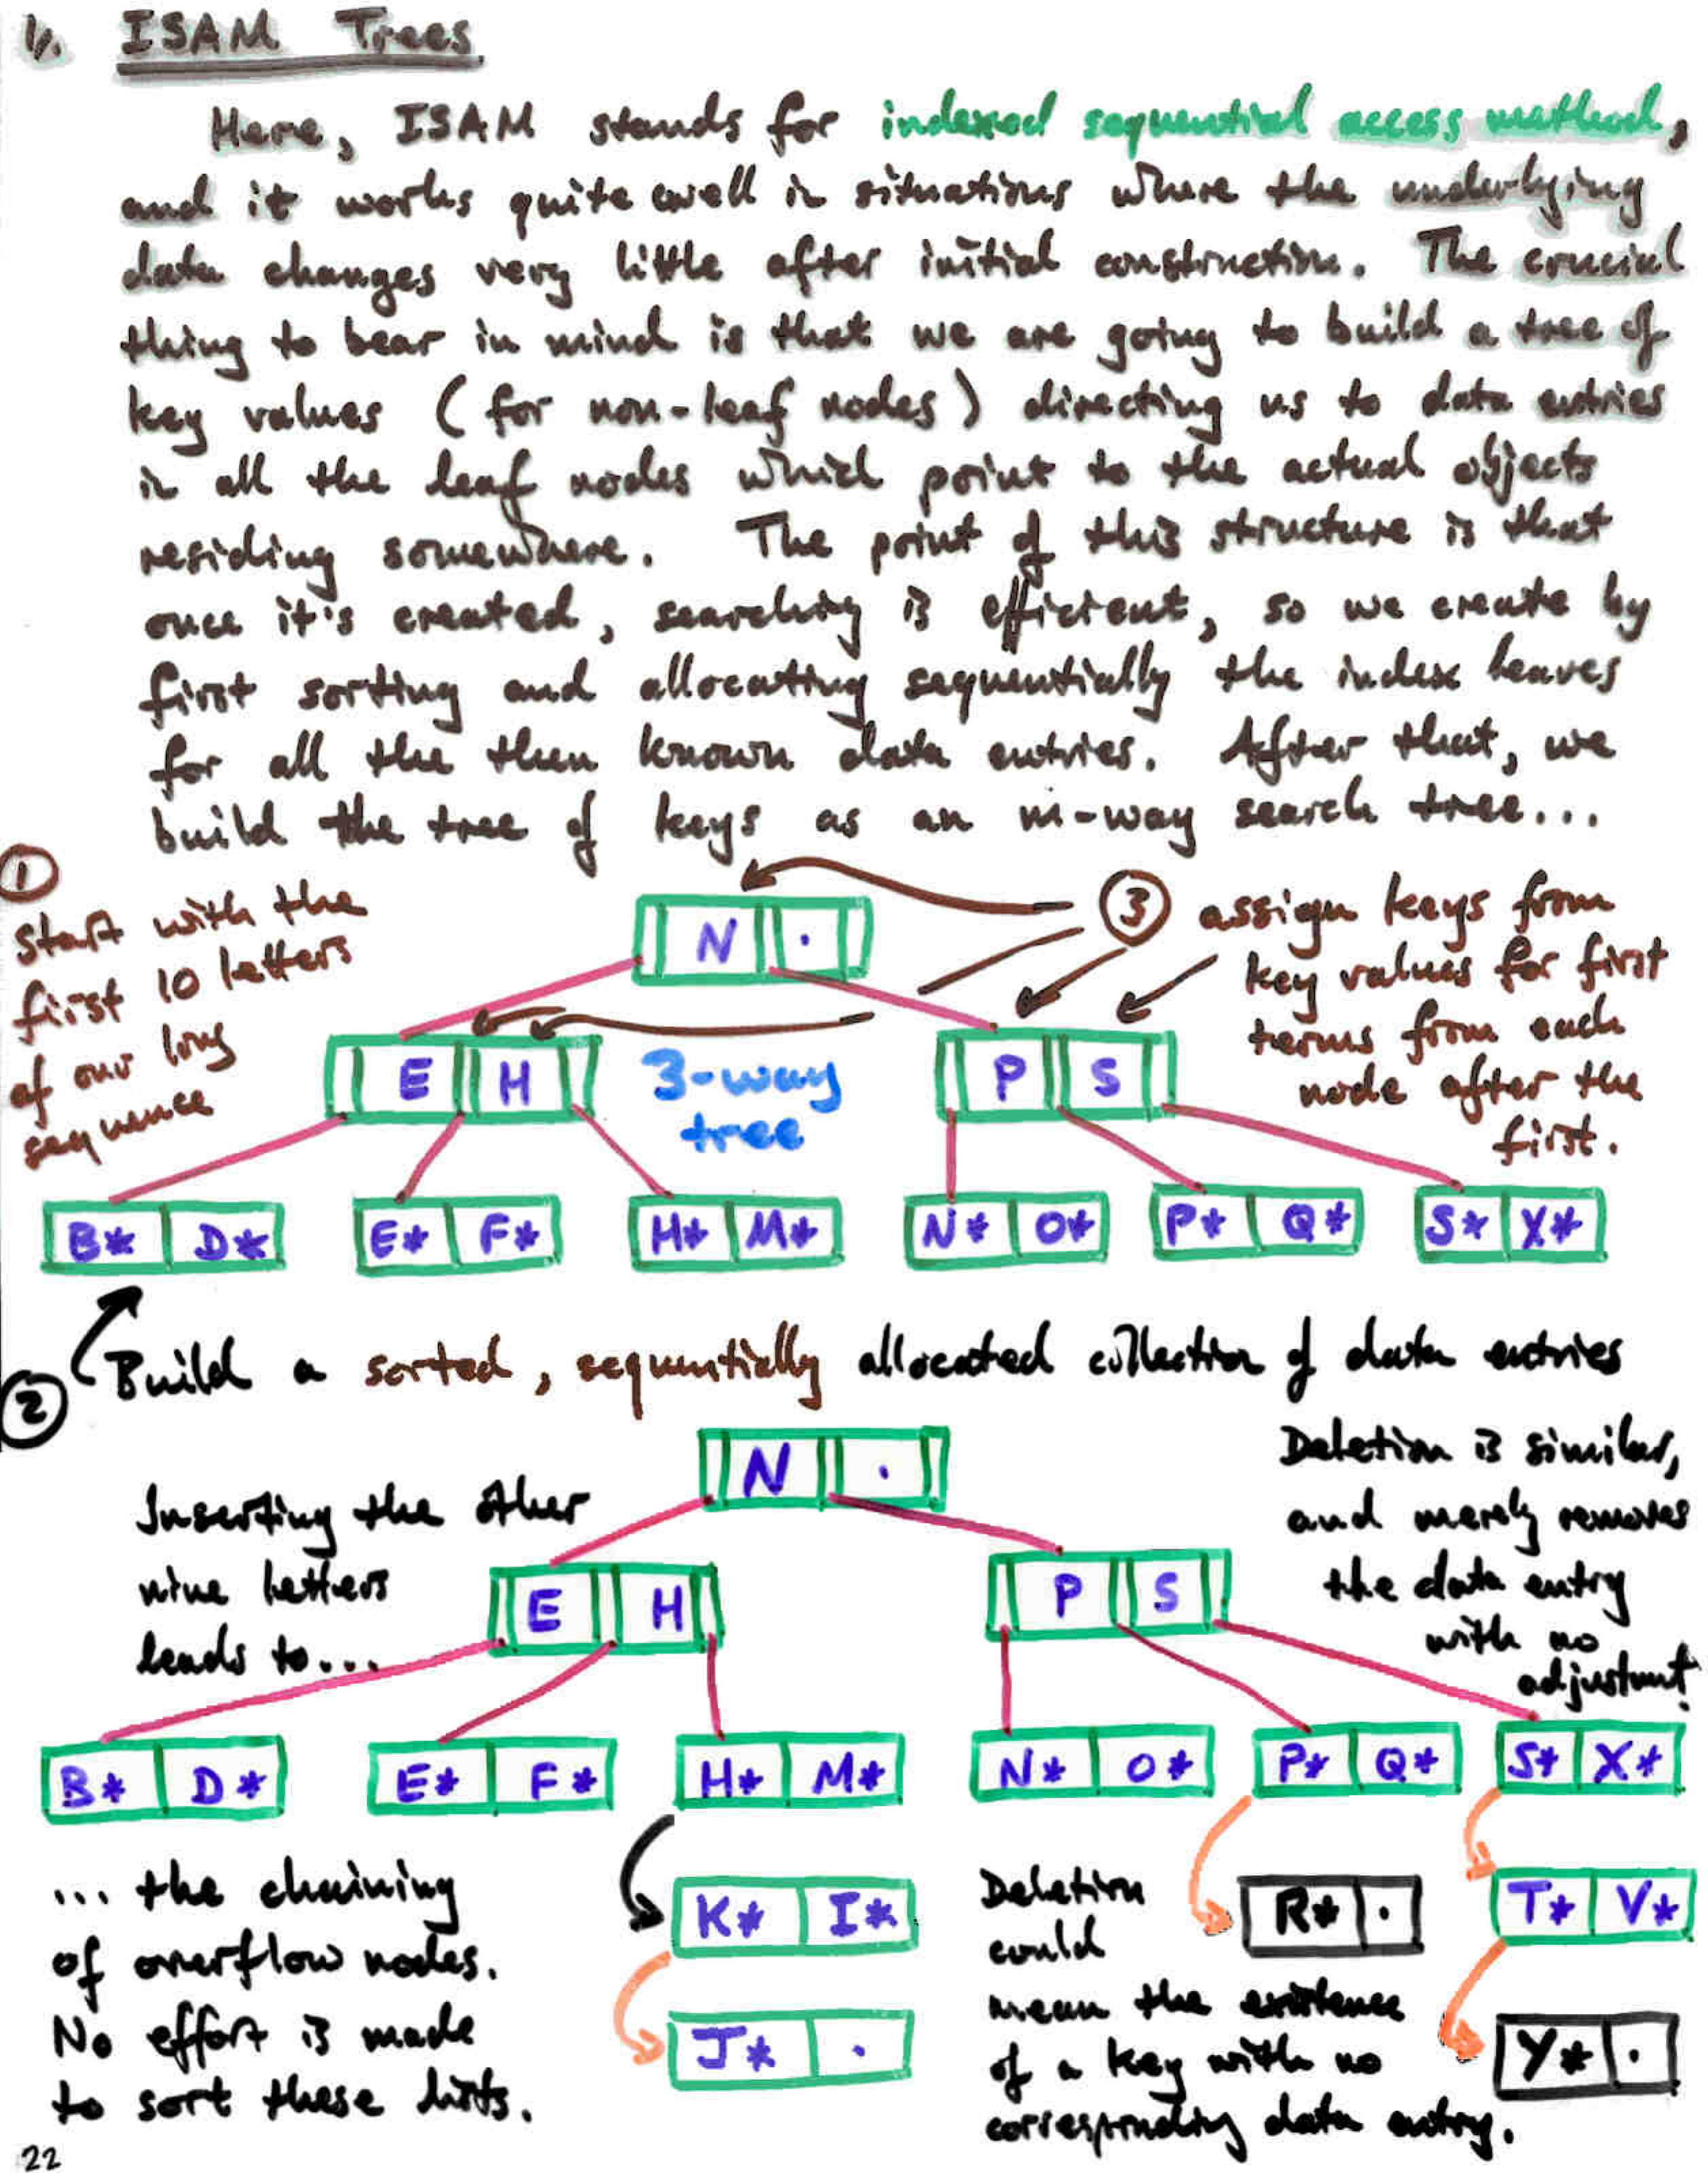 1/. ISAM Trees
Here, ISAM stands for indexed sequential access method,
and it works quite well in situations where the underlying
data changes very little after initial construction. The crucial
thing to bear in mind is that we are going to build a tree of
key values (for non-leaf nodes) directing us to data entries
in all the leaf nodes which point to the actual objects
residing somewhere. The point of this structure is that
once it's created, searching is efficient, so we create by
first sorting and allocating sequentially the index leaves
for all the then known data entries. After that, we
build the tree of keys as an m-way search tree...
1
start with the
first 10 letters
of our long
sequence
N .
3 assign keys from
key values for first
terms from each
node after the
first.
E H
3-way
tree
P S
B* D* E* F* H* M* N* O* P* Q* S* X*
2 Build a sorted, sequentially allocated collection of data entries
Inserting the other
nine letters
leads to...
N .
Deletion is similar,
and merely removes
the data entry
with no
adjustment!
E H P S
B* D* E* F* H* M* N* O* P* Q* S* X*
... the chaining
of overflow nodes.
No effort is made
to sort these lists.
K* I*
J* .
Deletion
could
mean the existence
of a key with no
corresponding data entry.
R* .
T* V*
Y* .
22